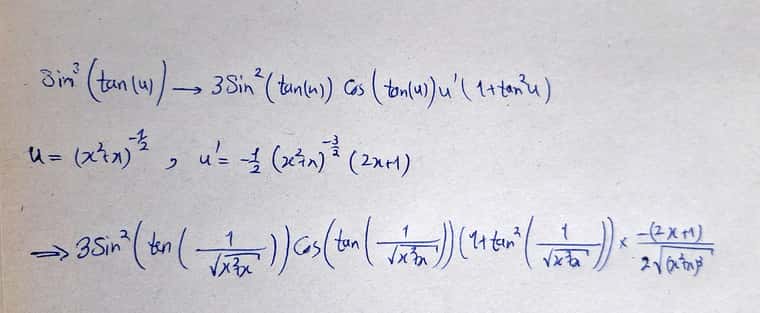 Sin³(tan(u)) → 3Sin²(tan(u)) Cos(tan(u)) u'(1+tan²u)
u = (x²+x)^(-1/2) , u' = -1/2 (x²+x)^(-3/2) (2x+1)
⇒ 3Sin²(tan(1/√(x²+x))) Cos(tan(1/√(x²+x))) (1+tan²(1/√(x²+x))) × -(2x+1)/(2√((x²+x)³))